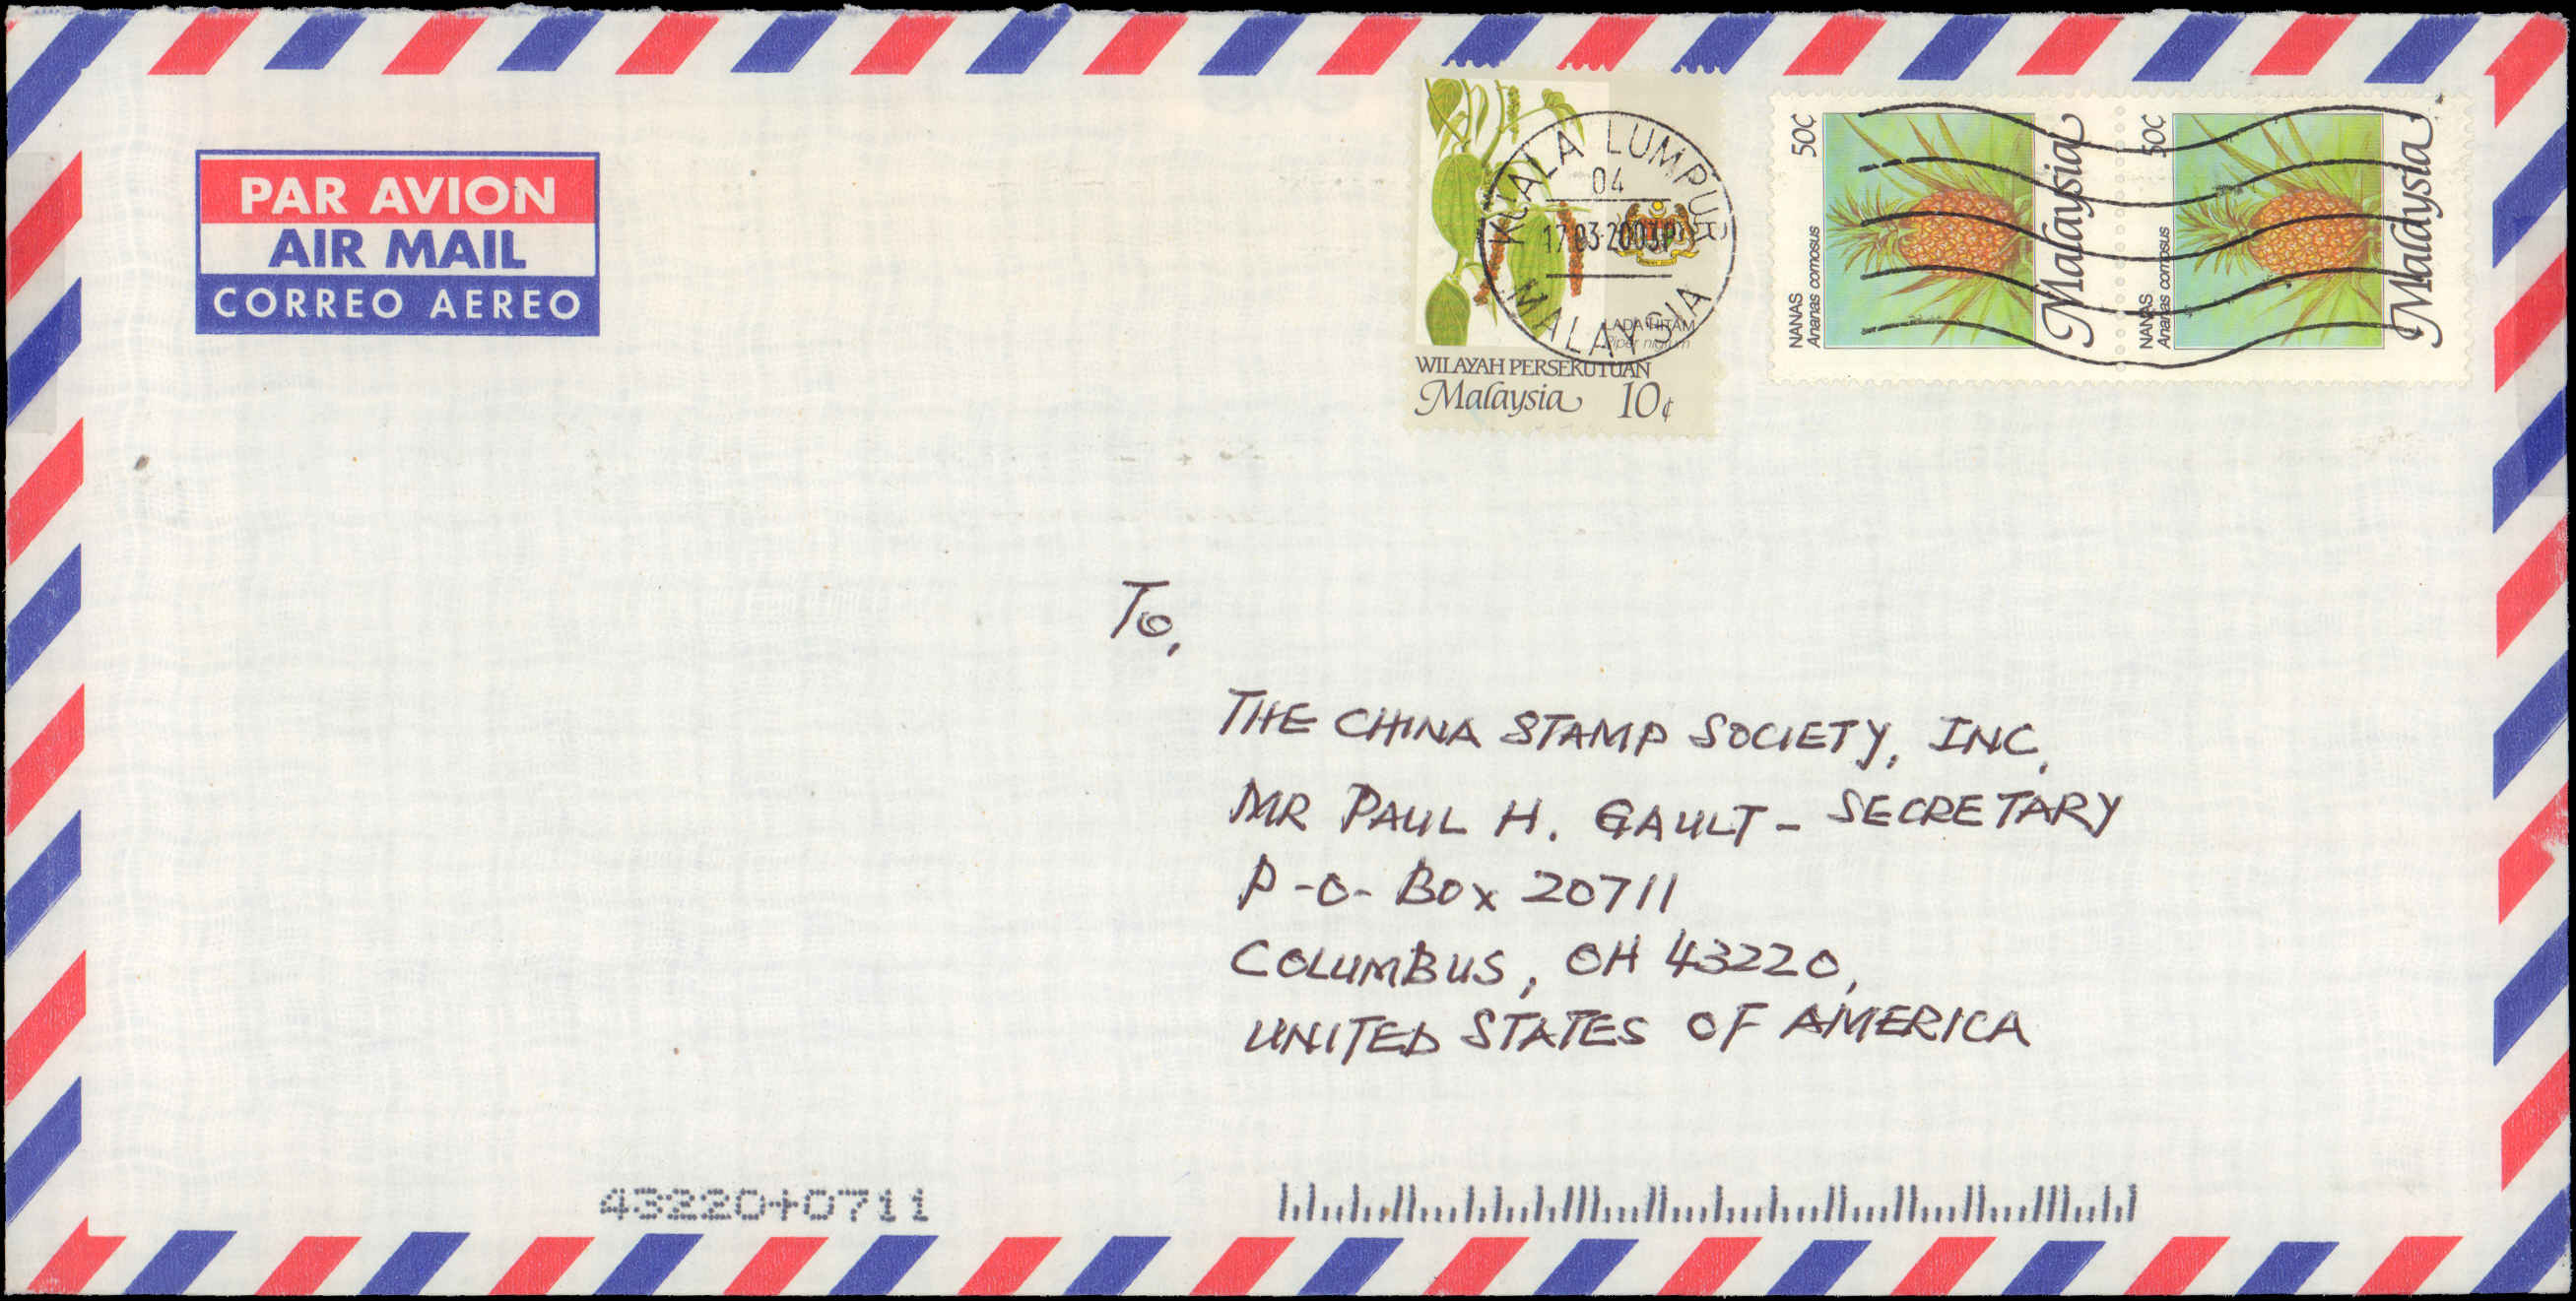 PAR AVION
AIR MAIL
CORREO AEREO
KUALA LUMPUR
04
17 03 2003P
MALAYSIA
LADA HITAM
Piper nigrum
WILAYAH PERSEKUTUAN
Malaysia 10¢
50¢
NANAS
Ananas comosus
Malaysia
50¢
NANAS
Ananas comosus
Malaysia
To,
THE CHINA STAMP SOCIETY, INC,
MR PAUL H. GAULT - SECRETARY
P-O- BOX 20711
COLUMBUS, OH 43220,
UNITED STATES OF AMERICA
43220+0711